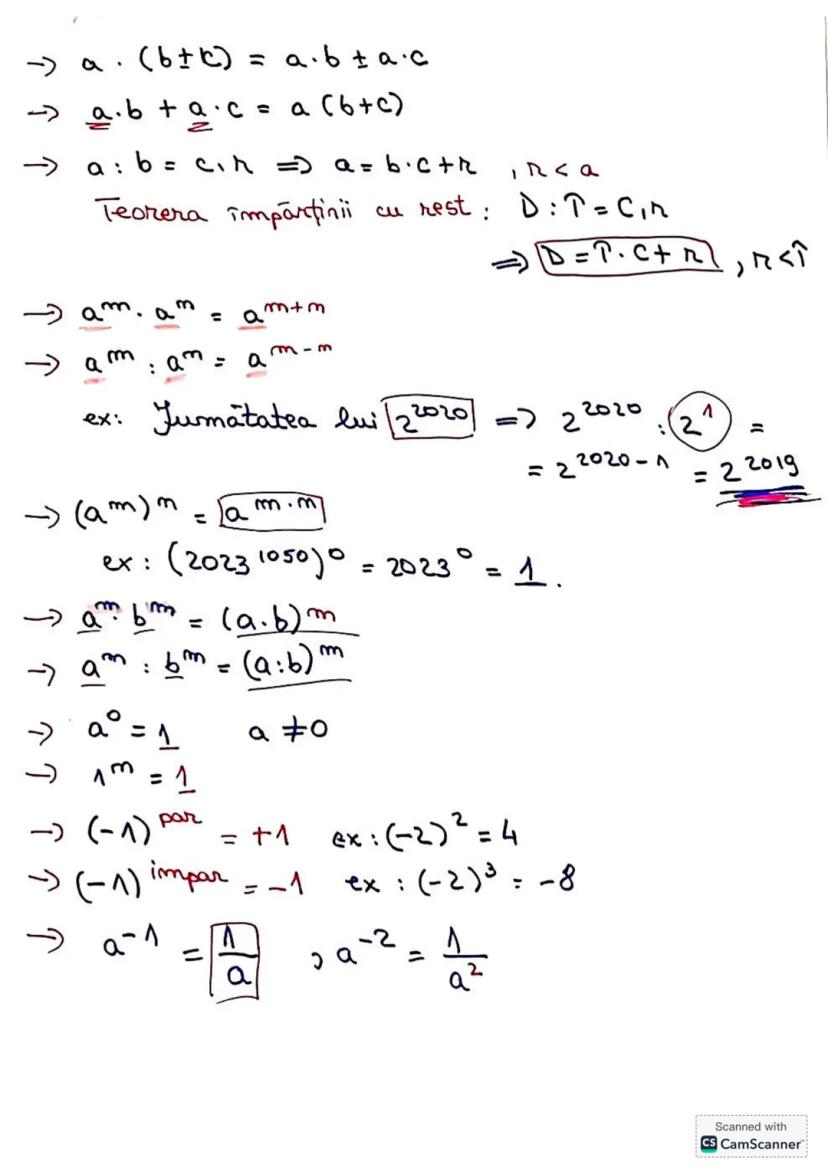 → a · (b ± c) = a·b ± a·c
→ a·b + a·c = a (b+c)
→ a : b = c, r ⇒ a = b·c + r , r < a
Teorera împărțirii cu rest : D : Î = C, r
⇒ D = Î · C + r , r < Î
→ aᵐ · aⁿ = aᵐ⁺ⁿ
→ aᵐ : aⁿ = aᵐ⁻ⁿ
ex: Jumătatea lui 2²⁰²⁰ ⇒ 2²⁰²⁰ : 2¹ =
= 2²⁰²⁰⁻¹ = 2²⁰¹⁹
→ (aᵐ)ⁿ = aᵐ·ⁿ
ex : (2023¹⁰⁵⁰)⁰ = 2023⁰ = 1 .
→ aᵐ · bᵐ = (a·b)ᵐ
→ aᵐ : bᵐ = (a:b)ᵐ
→ a⁰ = 1 a ≠ 0
→ 1ᵐ = 1
→ (-1)^par = +1 ex : (-2)² = 4
→ (-1)^impar = -1 ex : (-2)³ = -8
→ a⁻¹ = 1/a , a⁻² = 1/a²
Scanned with
CS CamScanner